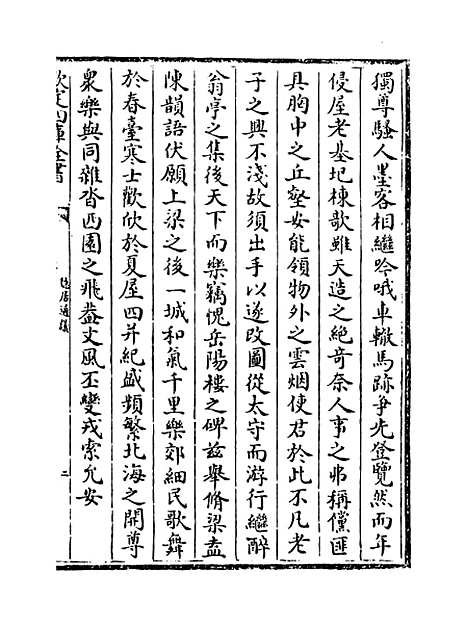 獨尊騷人墨客相繼吟哦車轍馬跡爭先登覽然而年
侵屋老基圮棟欹雖天造之絶竒奈人事之弗稱儻匪
具胸中之丘壑安能領物外之雲烟使君於此不凡老
子之興不淺故須出手以遂改圖從太守而游行繼醉
翁亭之集後天下而樂竊愧岳陽樓之碑兹舉脩梁盍
陳韻語伏願上梁之後一城和氣千里樂郊細民歌舞
於春臺寒士歡欣於夏屋四并紀盛頻繁北海之開尊
衆樂與同雜沓西園之飛葢丈風丕變戎索允安
欽定四庫全書
隱居通議
二